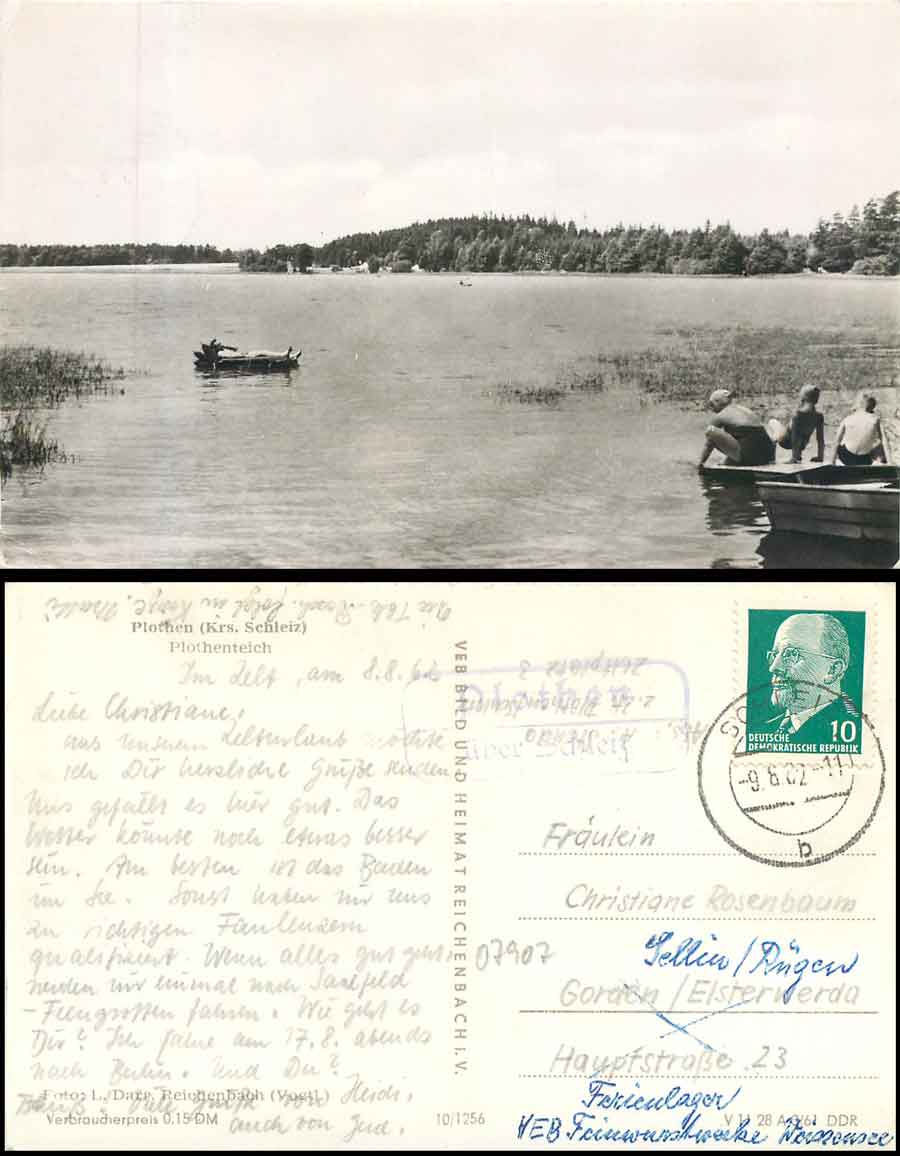 Plothen (Krs. Schleiz)
Plothenteich
Im Zelt, am 8.8.62
Liebe Christiane,
aus unserem Zelturlaub möchte
ich Dir herzliche Grüße senden.
Uns gefällt es hier gut. Das
Wetter könnte noch etwas besser
sein. Am besten ist das Baden
im See. Sonst haben wir uns
zu richtigen Faulenzern
qualifiziert. Wenn alles gut geht,
werden wir einmal nach Saalfeld
- Feengrotten fahren. Wie geht es
Dir? Ich fahre am 17.8. abends
nach Berlin. Und Du?
Foto: L. Darr, Reichenbach (Vogtl.)
Heidi,
auch von Jud.
Verbraucherpreis 0.15 DM
10/1256
VEB BILD UND HEIMAT REICHENBACH I. V.
Plothen
über Schleiz
Zeltplatz 3
DEUTSCHE
DEMOKRATISCHE REPUBLIK
10
-9.8.62-11
b
Fräulein
Christiane Rosenbaum
07907
Sellin/Rügen
Gorden/Elsterwerda
Hauptstraße 23
Ferienlager
V 11 28 A 6/61 DDR
VEB Feinwurstwerke Weissensee